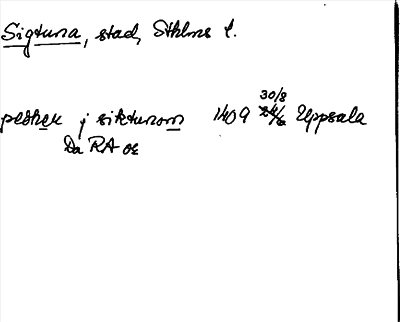 Sigtuna, stad, Sthlms l.
30/8
pethek j siktunom 1409 Uppsala
Da RA or